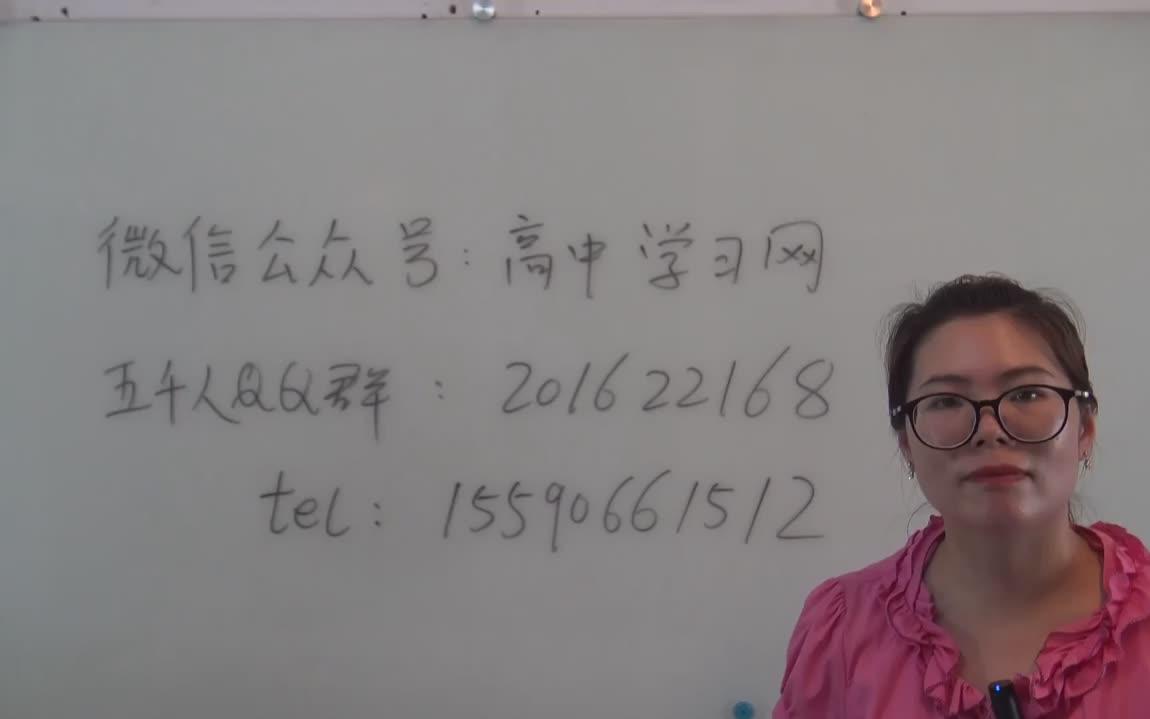 微信公众号:高中学习网
五千人QQ群:201622168
tel:15590661512